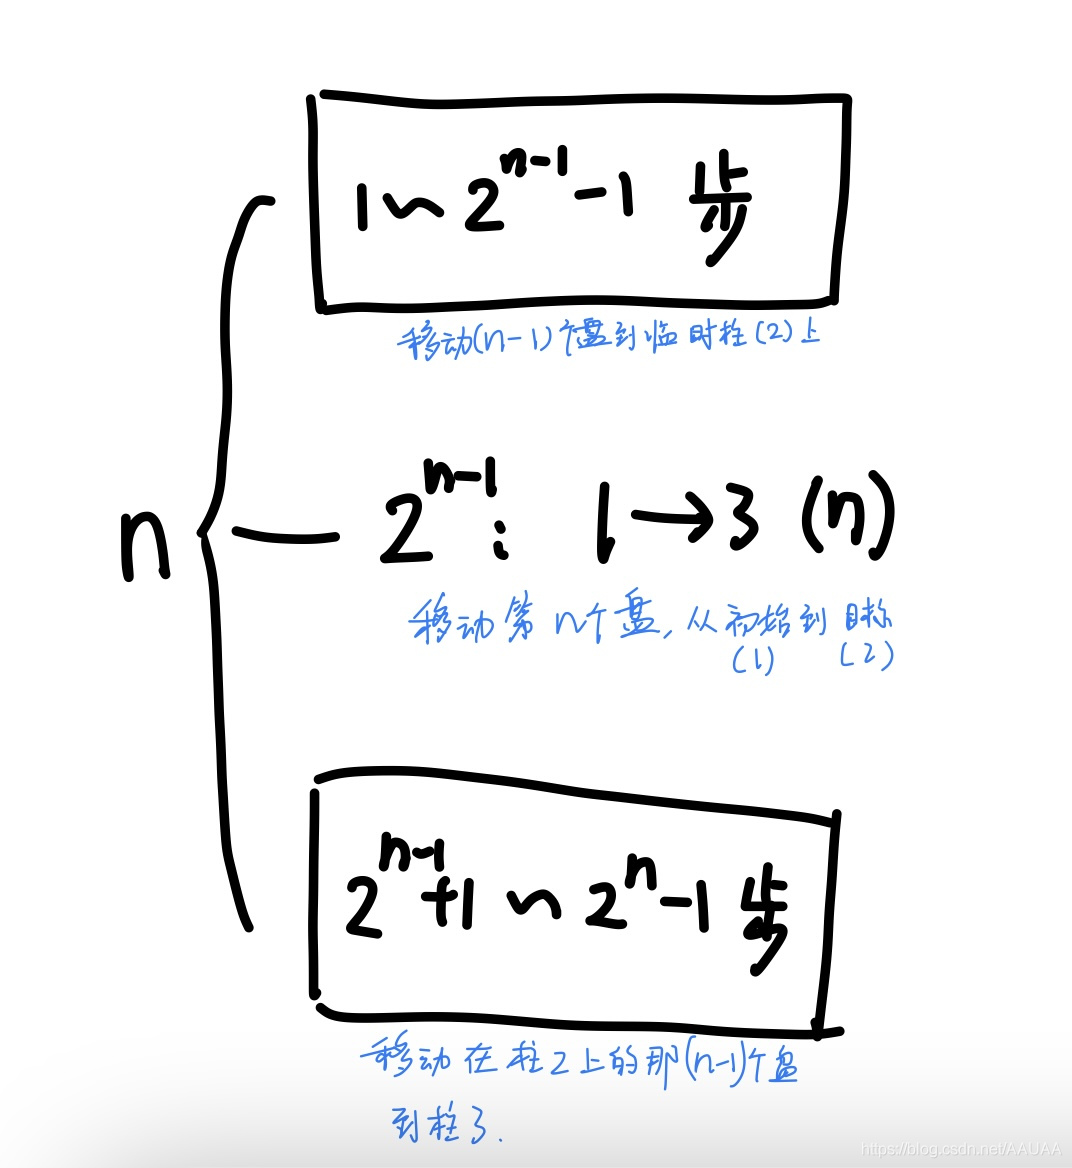 1~2^{n-1}-1 步
移动(n-1)个盘到临时柱(2)上
n
2^{n-1}: 1→3 (n)
移动第n个盘,从初始到目标
(1) (2)
2^{n-1}+1~2^n-1 步
移动在柱2上的那(n-1)个盘
到柱3.
https://blog.csdn.net/AAUAA